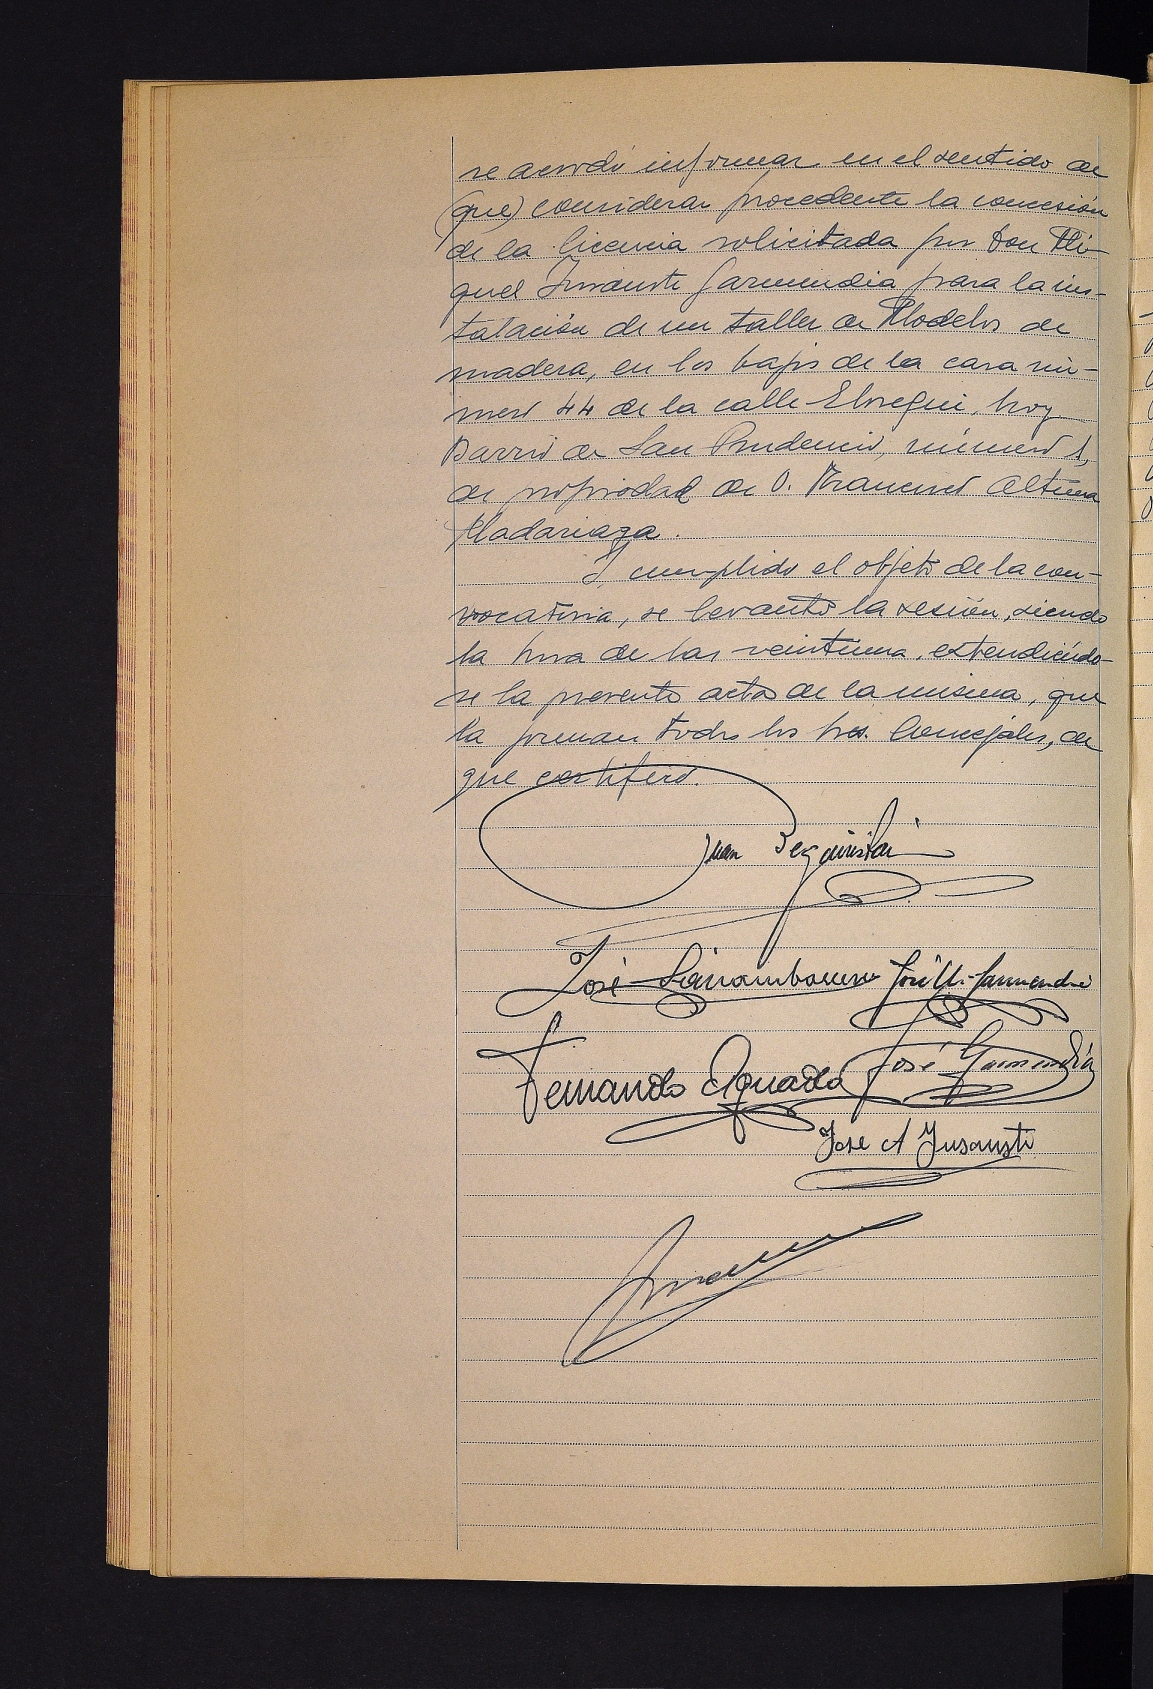 se acordó informar en el sentido de
(que) considerar procedente la concesión
de la licencia solicitada por Don Mi-
guel Insausti Garmendia para la ins-
talación de un taller de Modelos de
madera, en los bajos de la casa nú-
mero 44 de la calle Elosegui, hoy
Barrio de San Prudencio, número 1,
de propiedad de D. Francisco Altuna
Madariaga.
Y cumplido el objeto de la con-
vocatoria, se levantó la sesión, siendo
la hora de las veintiuna, extendiéndo-
se la presente acta de la misma, que
la firman todos los Sres. Concejales, de
que certifico.
Juan Beguiristain
José
José M. Garmendia
Fernando Aguado José Garmendia
Jose A Insausti